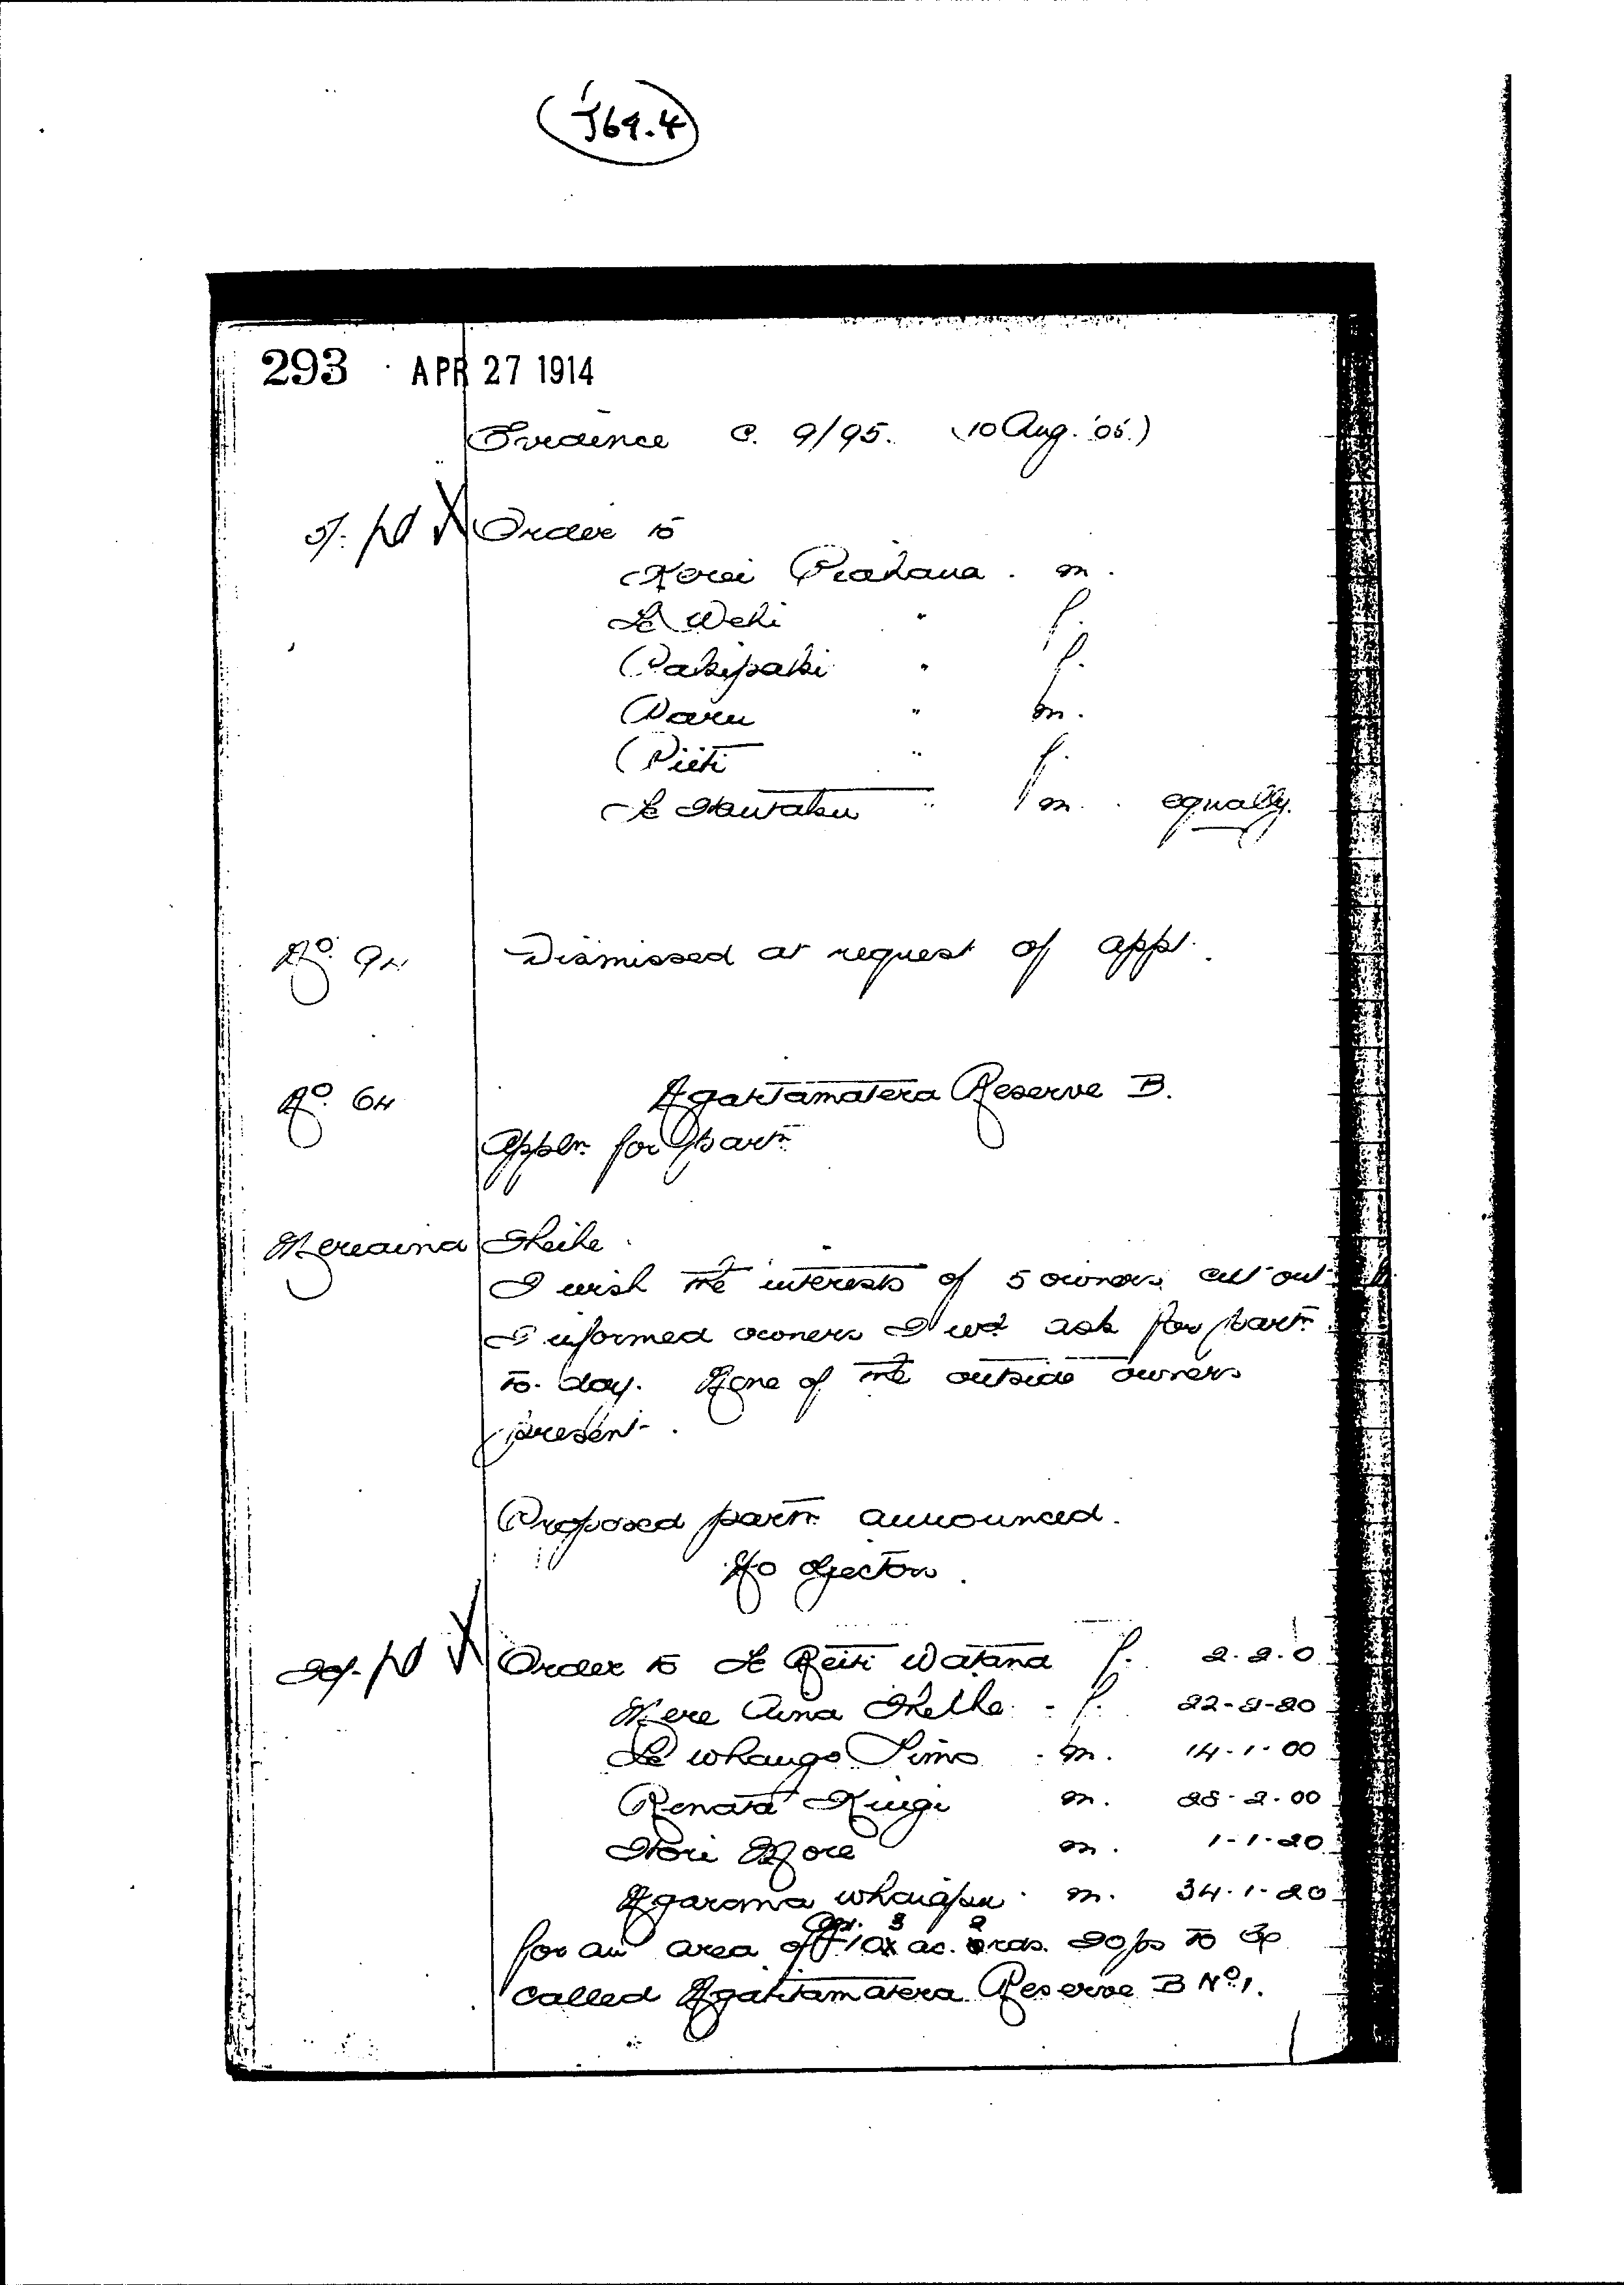 J69.4
293 APR 27 1914
Evidence C. 9/95. (10 Aug. '05.)
5/- pd X Order to
Kerei Peahana . m.
Te Weki " f.
Pakipaki " f.
Paru " m.
Piiti " f.
Te " m. equally.
No. 94 Dismissed at request of appt.
No. 64 Ngahtamatera Reserve B.
Appln. for partn.
Mereaina Heihe.
I wish the interests of 5 owners cut out
I informed owners I wd. ask for partn.
to-day. None of the outside owners
present.
Proposed partn. announced.
No ojectors.
20/- pd X Order to Te Reiti Watana f. 2-2-0
Mere Aina Heihe - f. 22-2-20
Te Whango Simo - m. 14-1-00
Renata Kingi m. 28-2-00
Hori More m. 1-1-20
Ngaroma Whaiapu . m. 34-1-20
for an area of 10 ac. rds. 20 ps to
called Ngahtamatera Reserve B No. 1.